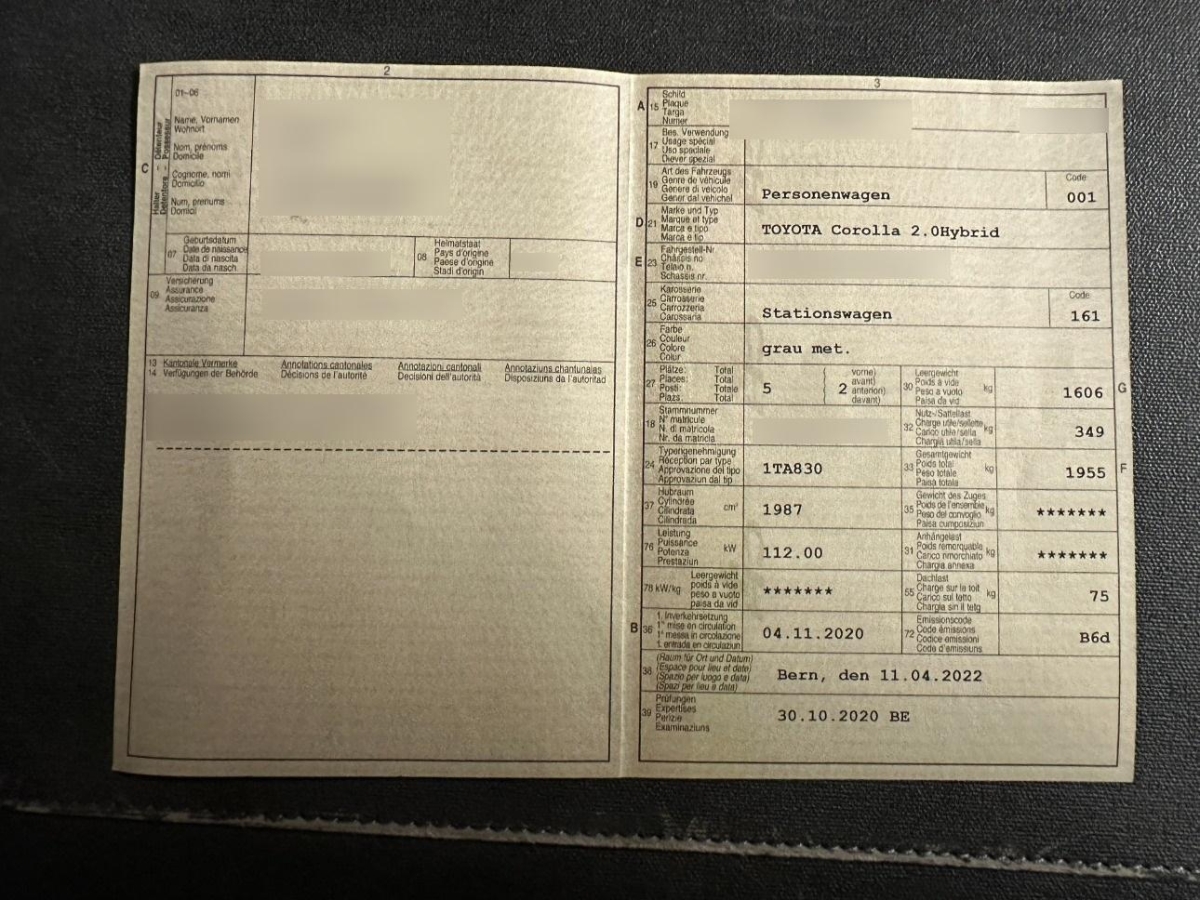 2
01-06
C
Halter - Détenteur
Detentore - Possessur
Name, Vornamen
Wohnort
Nom, prénoms
Domicile
Cognome, nomi
Domicilio
Num, prenums
Domicil
07
Geburtsdatum
Date de naissance
Data di nascita
Data da nasch.
08
Heimatstaat
Pays d'origine
Paese d'origine
Stadi d'origin
09
Versicherung
Assurance
Assicurazione
Assicuranza
13 Kantonale Vermerke Annotations cantonales Annotazioni cantonali Annotaziuns chantunalas
14 Verfügungen der Behörde Décisions de l'autorité Decisioni dell'autorità Disposiziuns da l'autoritad
3
A 15
Schild
Plaque
Targa
Numer
17
Bes. Verwendung
Usage spécial
Uso speciale
Diever spezial
19
Art des Fahrzeugs
Genre de véhicule
Genere di veicolo
Gener dal vehichel
Personenwagen
Code
001
D 21
Marke und Typ
Marque et type
Marca e tipo
Marca e tip
TOYOTA Corolla 2.0Hybrid
E 23
Fahrgestell-Nr.
Châssis no
Telaio n.
Schassis nr.
25
Karosserie
Carrosserie
Carrozzeria
Carossaria
Stationswagen
Code
161
26
Farbe
Couleur
Colore
Colur
grau met.
27
Plätze: Total
Places: Total
Posti: Totale
Plazs: Total
5
2
vorne)
avant)
anteriori)
davant)
30
Leergewicht
Poids à vide
Peso a vuoto
Paisa da vid
kg
1606
G
18
Stammnummer
N° matricule
N. di matricola
Nr. da matricla
32
Nutz-/Sattellast
Charge utile/sellette
Carico utile/sella
Chargia utila/sella
kg
349
24
Typengenehmigung
Réception par type
Approvazione del tipo
Approvaziun dal tip
1TA830
33
Gesamtgewicht
Poids total
Peso totale
Paisa totala
kg
1955
F
37
Hubraum
Cylindrée
Cilindrata
Cilindrada
cm³
1987
35
Gewicht des Zuges
Poids de l'ensemble
Peso del convoglio
Paisa cumposiziun
kg
*******
76
Leistung
Puissance
Potenza
Prestaziun
kW
112.00
31
Anhängelast
Poids remorquable
Carico rimorchiato
Chargia annexa
kg
*******
78 kW/kg
Leergewicht
poids à vide
peso a vuoto
paisa da vid
*******
55
Dachlast
Charge sur le toit
Carico sul tetto
Chargia sin il tetg
kg
75
B 36
1. Inverkehrsetzung
1re mise en circulation
1a messa in circolazione
1. entrada en circulaziun
04.11.2020
72
Emissionscode
Code émissions
Codice emissioni
Code d'emissiuns
B6d
38
(Raum für Ort und Datum)
(Espace pour lieu et date)
(Spazio per luogo e data)
(Spazi per lieu e data)
Bern, den 11.04.2022
39
Prüfungen
Expertises
Perizie
Examinaziuns
30.10.2020 BE